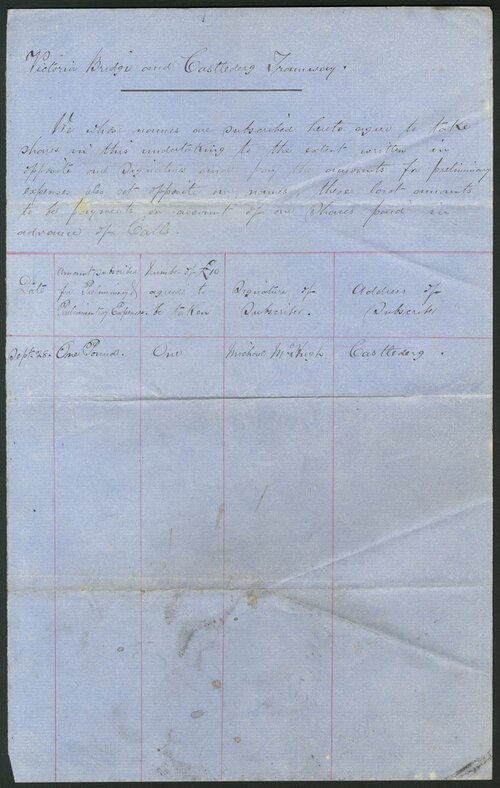 Victoria Bridge and Castlederg Tramway.
We whose names are subscribed hereto agree to take
shares in this undertaking to the extent written in
opposite our Signatures and pay the amounts for preliminary
expenses also set opposite our names, these last amounts
to be payments on account of our Shares paid in
advance of Calls.
Date
Amount Subscribed
for Preliminary &
Parliamentary Expenses.
Number of £10
agreed to
be taken
Signature of
Subscriber.
Address of
Subscriber
Sept. 28.
One Pound.
One
Michael McHugh
Castlederg.